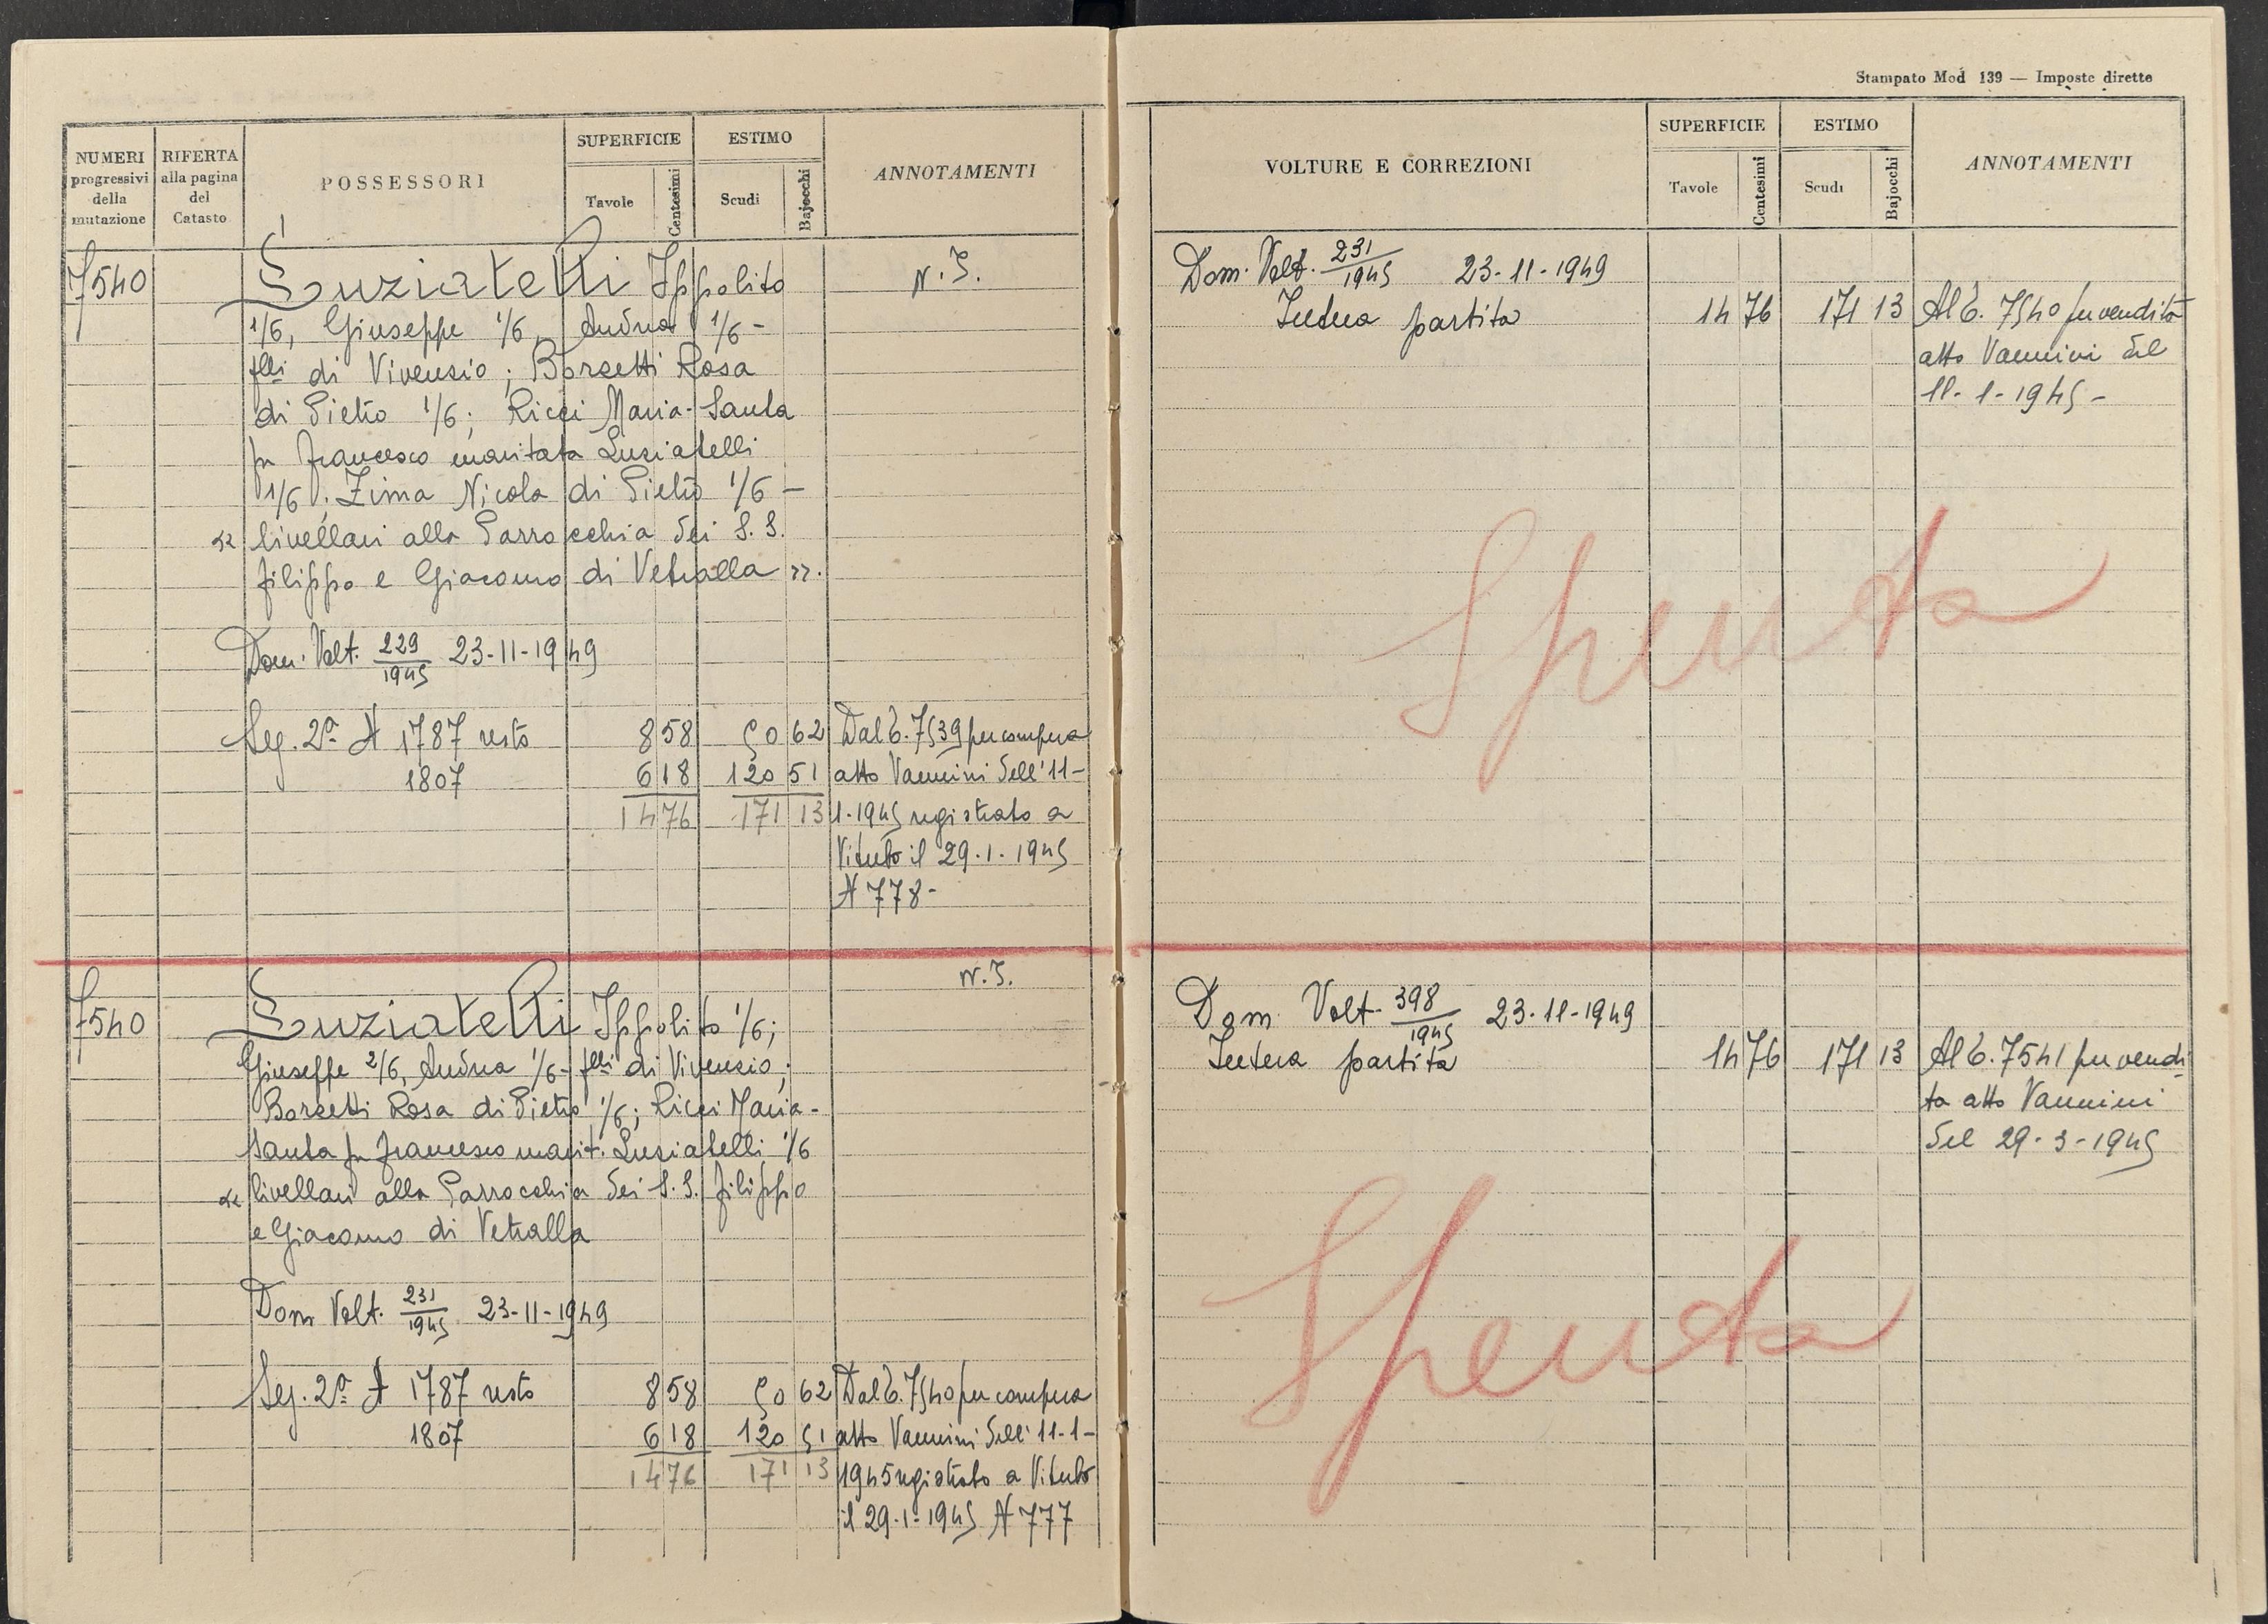 NUMERI progressivi della mutazione
RIFERTA alla pagina del Catasto
POSSESSORI
SUPERFICIE
Tavole
Centesimi
ESTIMO
Scudi
Bajocchi
ANNOTAMENTI
7540
Luziatelli Ippolito
N. I.
1/6, Giuseppe 1/6, Andrea 1/6 -
flli di Vivenzio; Borzetti Rosa
di Pietro 1/6; Ricci Maria-Santa
fu Francesco maritata Luziatelli
1/6; Zima Nicola di Pietro 1/6 -
« livellari alla Parrocchia dei S. S.
Filippo e Giacomo di Vetralla ».
Dom. Volt. 229/1945 23-11-1949
Seg. 2ª N 1787 resto 8 58 50 62 Dal 6. 7539 per compera
1807 6 18 120 51 atto Vannini dell'11-
14 76 171 13 1-1945 registrato a
Viterbo il 29.1.1945
N 778-
7540
N. I.
Luziatelli Ippolito 1/6;
Giuseppe 2/6, Andrea 1/6- flli di Vivenzio;
Borzetti Rosa di Pietro 1/6; Ricci Maria-
Santa fu Francesco marit. Luziatelli 1/6
« livellari alla Parrocchia dei S. S. Filippo
e Giacomo di Vetralla
Dom Volt. 231/1945 23-11-1949
Seg. 2ª N 1787 resto 8 58 50 62 Dal 6. 7540 per compera
1807 6 18 120 51 atto Vannini dell'11-1-
14 76 171 13 1945 registrato a Viterbo
il 29-1-1945 N 777
Stampato Mod 139 — Imposte dirette
VOLTURE E CORREZIONI
SUPERFICIE
Tavole
Centesimi
ESTIMO
Scudi
Bajocchi
ANNOTAMENTI
Dom. Volt. 231/1945 23-11-1949
Intera partita 14 76 171 13 Al 6. 7540 per vendita
atto Vannini del
11-1-1945-
Spenta
Dom Volt. 398/1945 23-11-1949
Intera partita 14 76 171 13 Al 6. 7541 per vendi
ta atto Vannini
del 29-3-1945
Spenta